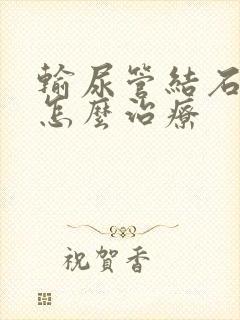 輸尿管結石
怎麼治療
祝賀香